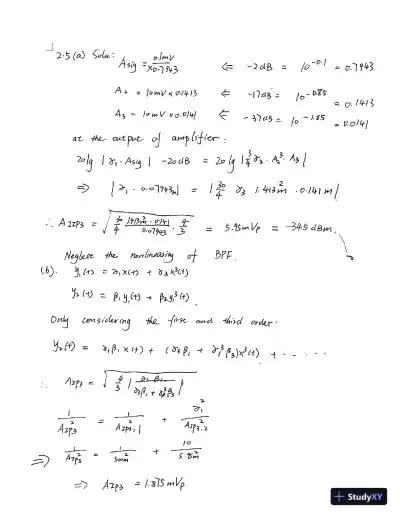 2.5 (a) Solu: Asig = 0.1mV × 0.7943 ⇐ -2dB = 10^-0.1 = 0.7943
A2 = 10mV × 0.1413 ⇐ -17dB = 10^-0.85 = 0.1413
A3 = 10mV × 0.0141 ⇐ -37dB = 10^-1.85 = 0.0141
at the output of amplifier:
20lg | γ1 · Asig | -20dB = 20lg | 3/4 γ3 · A2^2 · A3 |
⇒ | γ1 · 0.07943m | = | 30/4 γ3 1.413m^2 · 0.141m |
= 5.95mVp = -34.5dBm,
Neglect the nonlinearity of BPF.
(b). y1(t) = γ1x(t) + γ3x^3(t)
y2(t) = β1y1(t) + β3y1^3(t).
Only considering the first and third order:
y2(t) = γ1β1x(t) + (γ3β1 + γ1^3β3)x^3(t) + ......
∴ AIP3 = √ 4/3 | γ1β1 / γ3β1 + γ1^3β3 |
1/AIP3^2 = 1/AIP3,1^2 + γ1^2/AIP3,2^2
⇒ 1/AIP3^2 = +
⇒ AIP3 = 1.875mVp
+ StudyXY